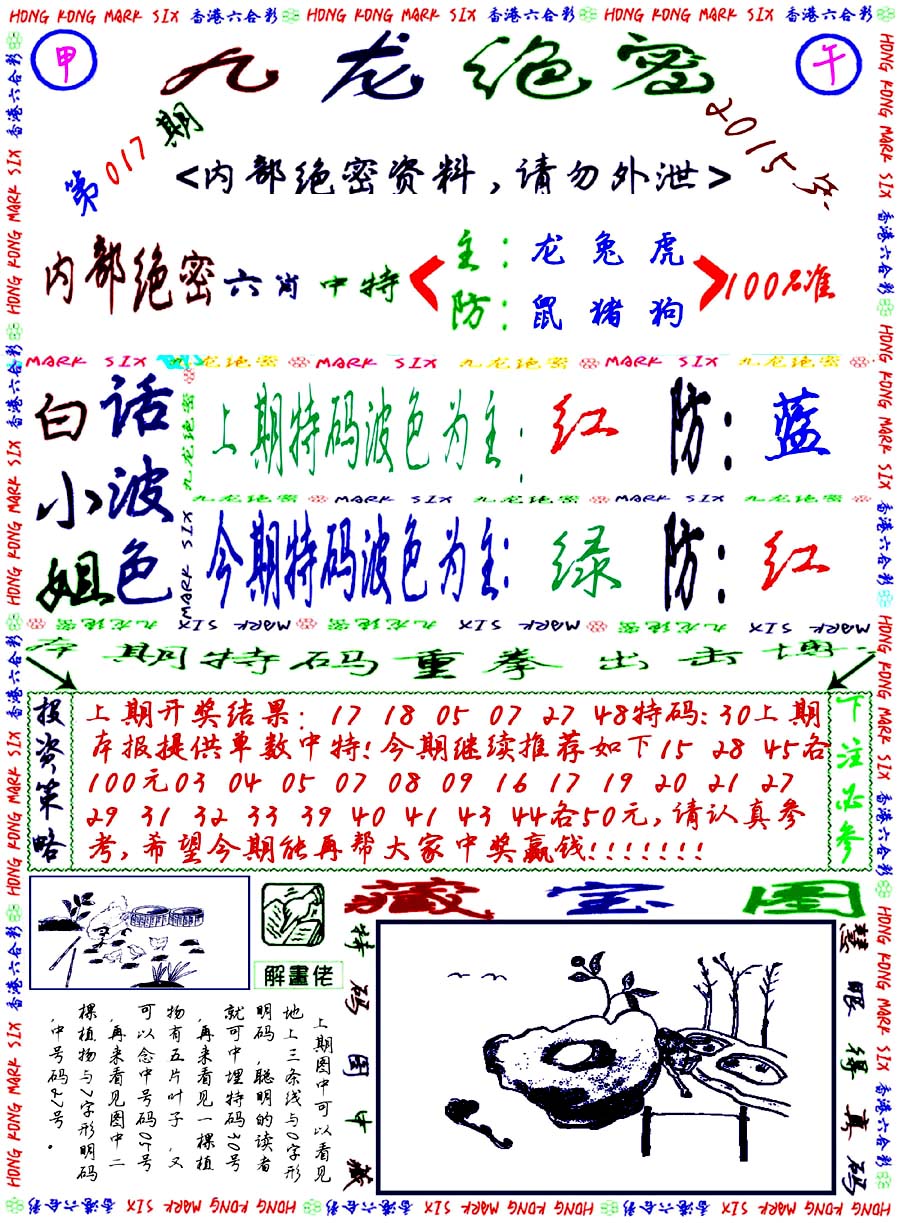 HONG KONG MARK SIX 香港六合彩 HONG KONG MARK SIX 香港六合彩 HONG KONG MARK SIX 香港六合彩
甲
九龙绝密
午
第017期
2015年
<内部绝密资料,请勿外泄>
内部绝密六肖中特
主:龙兔虎
防:鼠猪狗
100%准
MARK SIX 九龙绝密 MARK SIX 九龙绝密 MARK SIX 九龙绝密
白话小波姐色
上期特码波色为主:红 防:蓝
九龙绝密 MARK SIX 九龙绝密 MARK SIX 九龙绝密
今期特码波色为主:绿 防:红
九龙绝密 MARK SIX 九龙绝密 MARK SIX 九龙绝密 MARK SIX
本期特码重拳出击博
投资策略
上期开奖结果: 17 18 05 07 27 48特码:30上期
本报提供单数中特!今期继续推荐如下15 28 45各
100元03 04 05 07 08 09 16 17 19 20 21 27
29 31 32 33 39 40 41 43 44各50元,请认真参
考,希望今期能再帮大家中奖赢钱!!!!!!!
下注必参
藏宝图
解畫佬
特码图中藏
慧眼得真码
上期图中可以看见
地上三条线与0字形
明码,聪明的读者
就可中埋特码30号
,再来看见一棵植
物有五片叶子,又
可以念中号码05号
,再来看见图中二
棵植物与7字形明码
,中号码27号。
HONG KONG MARK SIX 香港六合彩 HONG KONG MARK SIX 香港六合彩 HONG KONG MARK SIX 香港六合彩